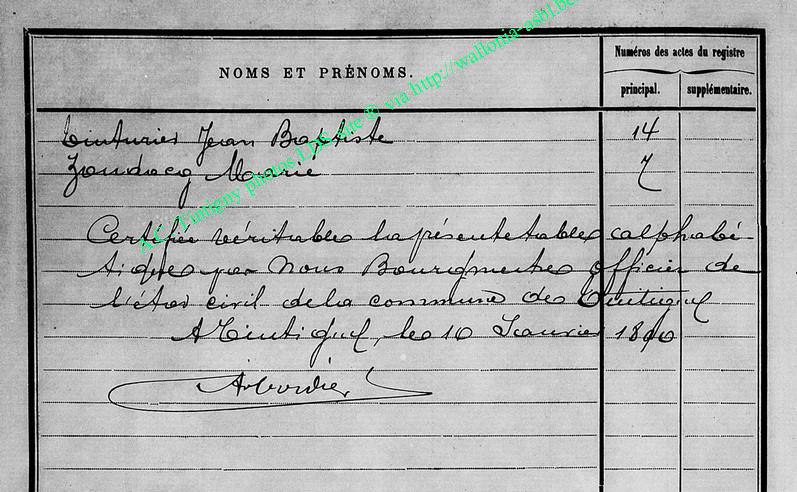 NOMS ET PRÉNOMS.
Numéros des actes du registre
principal. supplémentaire.
Tinturier Jean Baptiste 14
Zoudacq Marie 7
Certifiée véritable la présente table alphabé-
tique par Nous Bourgmestre officier de
l'état civil de la commune de
A le 10 Janvier
AC Tintigny photos LDS site ® via http://wallonia-asbl.be